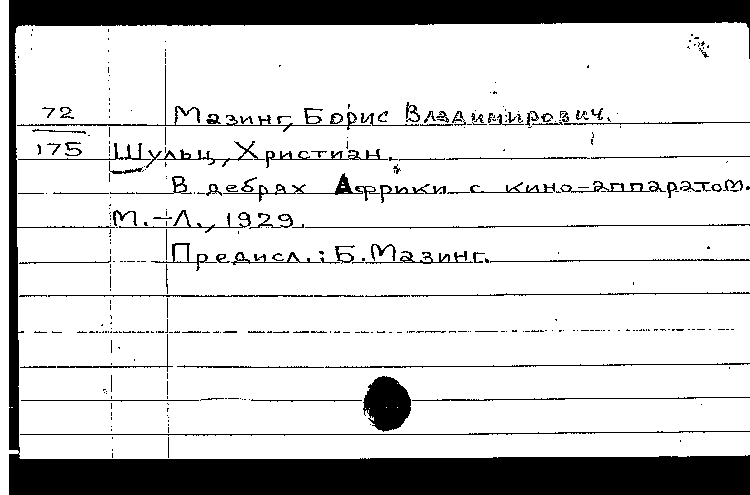 72 Мазинг, Борис Владимирович.
175 Шульц, Христиан.
В дебрях Африки с кино-аппаратом.
М.-Л., 1929.
Предисл.: Б. Мазинг.